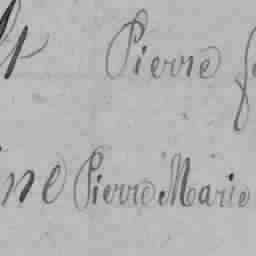 Pierre
Pierre Marie